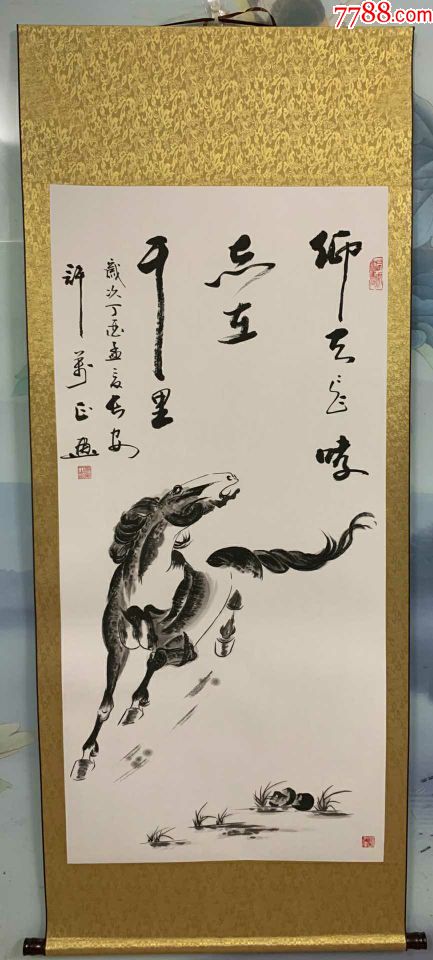 7788.com
仰天长啸
志在
千里
岁次丁酉孟夏长安
许万正画